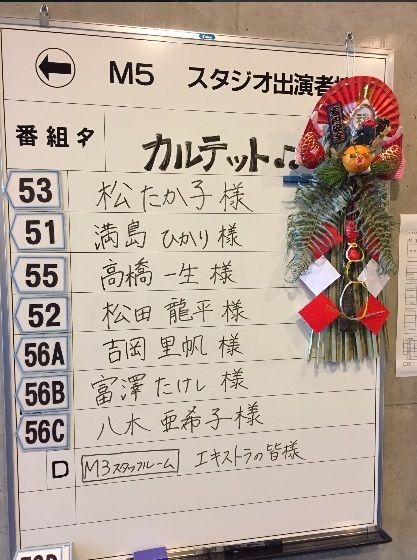 ← M5 スタジオ出演者
番組名 カルテット♫
53 松たか子様
51 満島ひかり様
55 高橋一生様
52 松田龍平様
56A 吉岡里帆様
56B 富澤たけし様
56C 八木亜希子様
D M3スタッフルーム エキストラの皆様